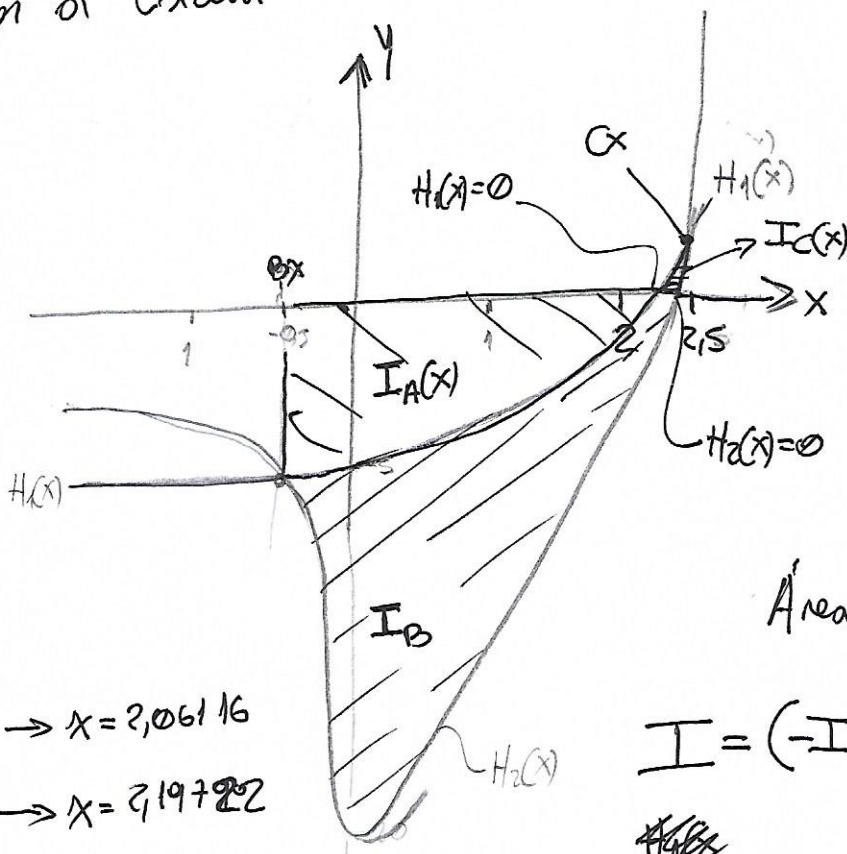 Y
Cx
H₁(x)=0
H₁(x)
I_C(x)
Bx
X
1
-0,5
1
2
2,5
I_A(x)
H₂(x)=0
H₁(x)
I_B
Área
→ x = 2,06116
I = (-I
H₂(x)